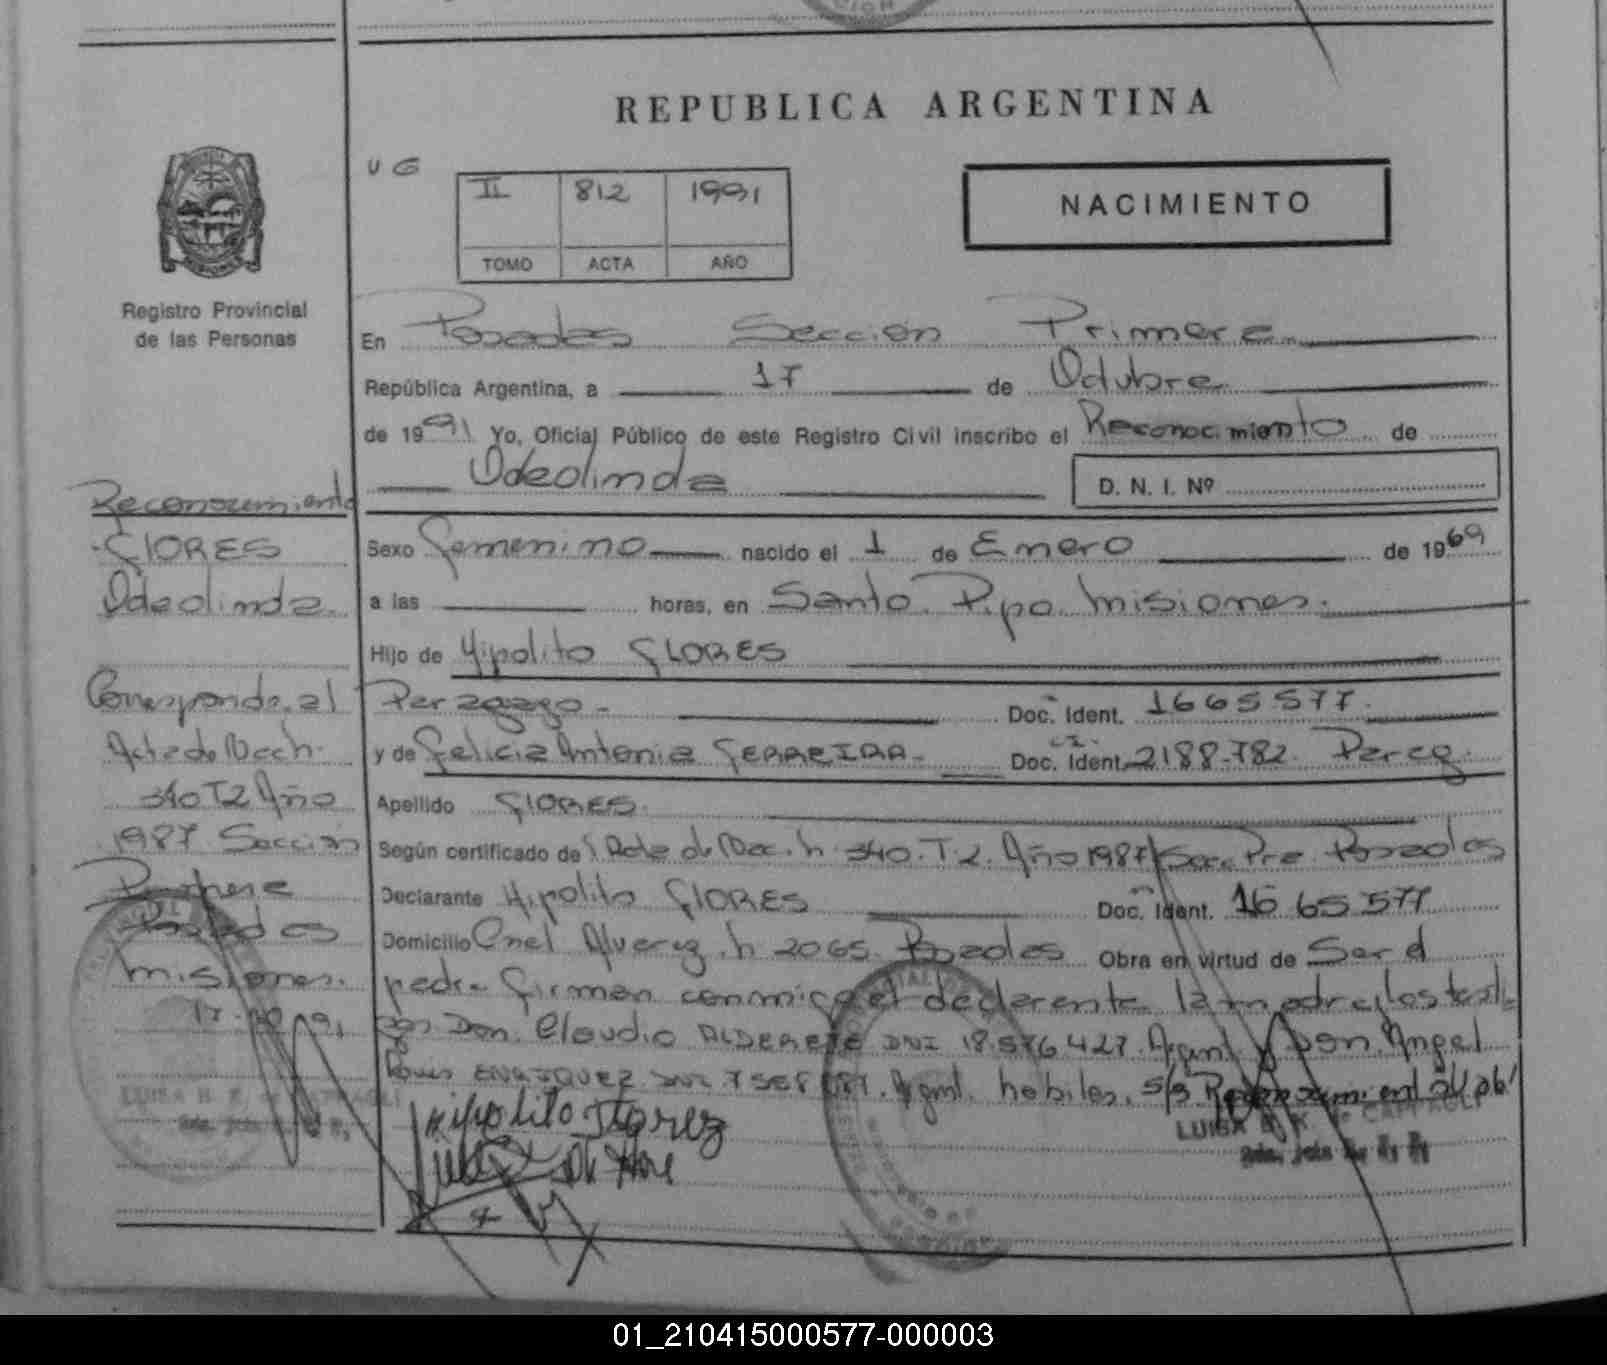 REPUBLICA ARGENTINA
U G
II 812 1991
TOMO ACTA AÑO
NACIMIENTO
Registro Provincial
de las Personas
En Posadas Sección Primera
República Argentina, a 17 de Octubre
de 1991 Yo, Oficial Público de este Registro Civil inscribo el Reconocimiento de
Odeolinda
D. N. I. Nº
Reconocimiento
FLORES
Odeolinda
Corresponde al
Acta de Nach.
340 T2 Año
1987 Sección
Primera
Posadas
Misiones.
17-10-91
Sexo Femenino nacido el 1 de Enero de 1969
a las horas, en Santo Pipo Misiones.
Hijo de Hipolito FLORES
Paraguayo - Doc. Ident. 1665577.
y de Felicia Antonia FERREIRA - Doc. Ident. C.I. 2188-782. Parag.
Apellido FLORES.
Según certificado de Acta de Nac. h 340. T.2. Año 1987 Secc Pra. Posadas
Declarante Hipolito FLORES Doc. Ident. 16 65 577
Domicilio Cnel Alvarez h 2065. Posadas Obra en virtud de Ser el
padre Firman conmigo el declarante la madre y los testi-
gos Don. Claudio ALDERETE DNI 18.576.427. Argent. y Don. Angel
ENRIQUEZ DNI Argent. habiles. s/r Reconocimiento
Hipolito Florez
LUISA